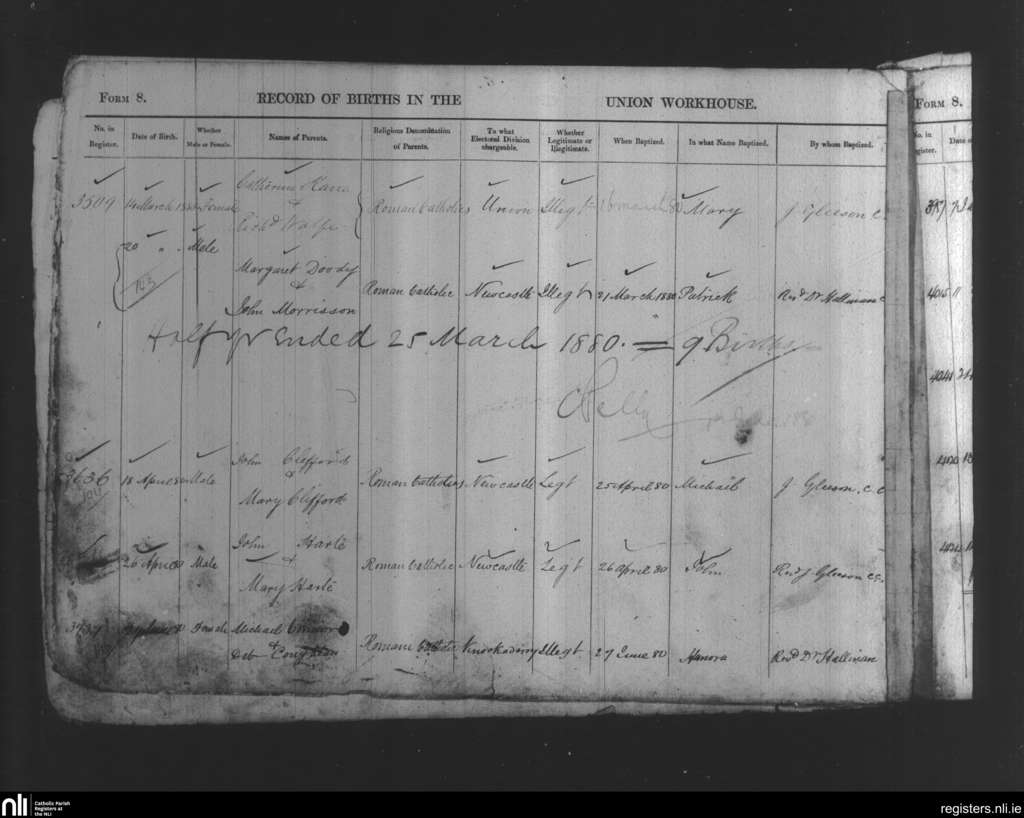 FORM 8. RECORD OF BIRTHS IN THE UNION WORKHOUSE. FORM 8.
No. in Register. Date of Birth. Whether Male or Female. Names of Parents. Religious Denomination of Parents. To what Electoral Division chargeable. Whether Legitimate or Illegitimate. When Baptized. In what Name Baptized. By whom Baptized.
Catherine
14 March Female & Roman Catholics Union Illegt 80 Mary J Gleeson C.
Richd Wolfe
20 " " Male
Margaret Doody
143 & Roman Catholic Newcastle Illegt 21 March 1880 Patrick Revd Dr Hallinan
John Morrisson
Half yr Ended 25 March 1880. = 9 Births
John Clifford
3636 18 April 80 Male & Roman Catholics Newcastle Legt 25 April 80 Michael J Gleeson, C.C.
Mary Clifford
John Harte
26 April 80 Male & Roman Catholic Newcastle Legt 26 April 80 John Revd J Gleeson C.C.
Mary Harte
Female Michael Connor
& Roman Catholic Knockaderry Illegt 27 June 80 Hanora Revd Dr Hallinan
Deb Coughlan
nli Catholic Parish Registers at the NLI
registers.nli.ie